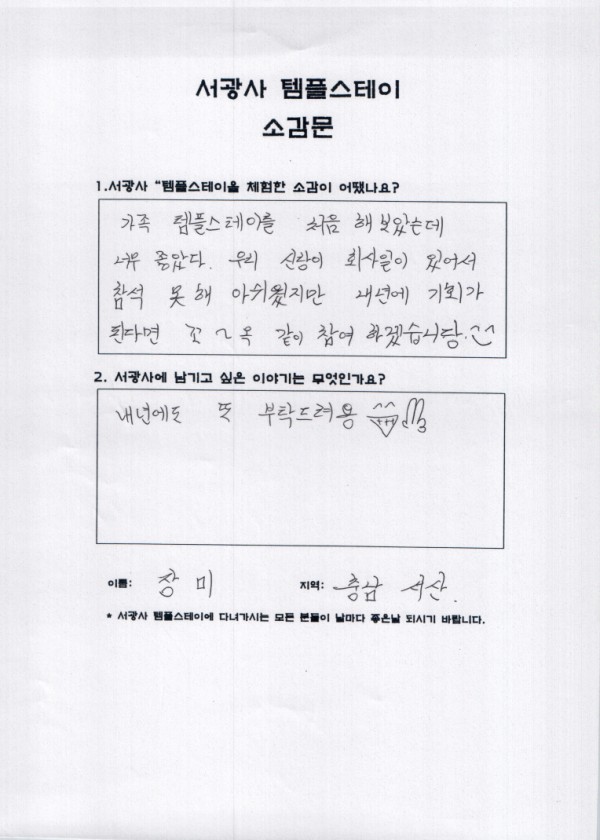 서광사 템플스테이
소감문
1.서광사 "템플스테이을 체험한 소감이 어땠나요?
가족 템플스테이를 처음 해보았는데
너무 좋았다. 우리 신랑이 회사일이 있어서
참석 못해 아쉬웠지만 내년에 기회가
된다면 꼬~옥 같이 참여 하겠습니당.^^
2. 서광사에 남기고 싶은 이야기는 무엇인가요?
내년에도 또 부탁드려용
이름: 장미 지역: 충남 서산.
* 서광사 템플스테이에 다녀가시는 모든 분들이 날마다 좋은날 되시기 바랍니다.